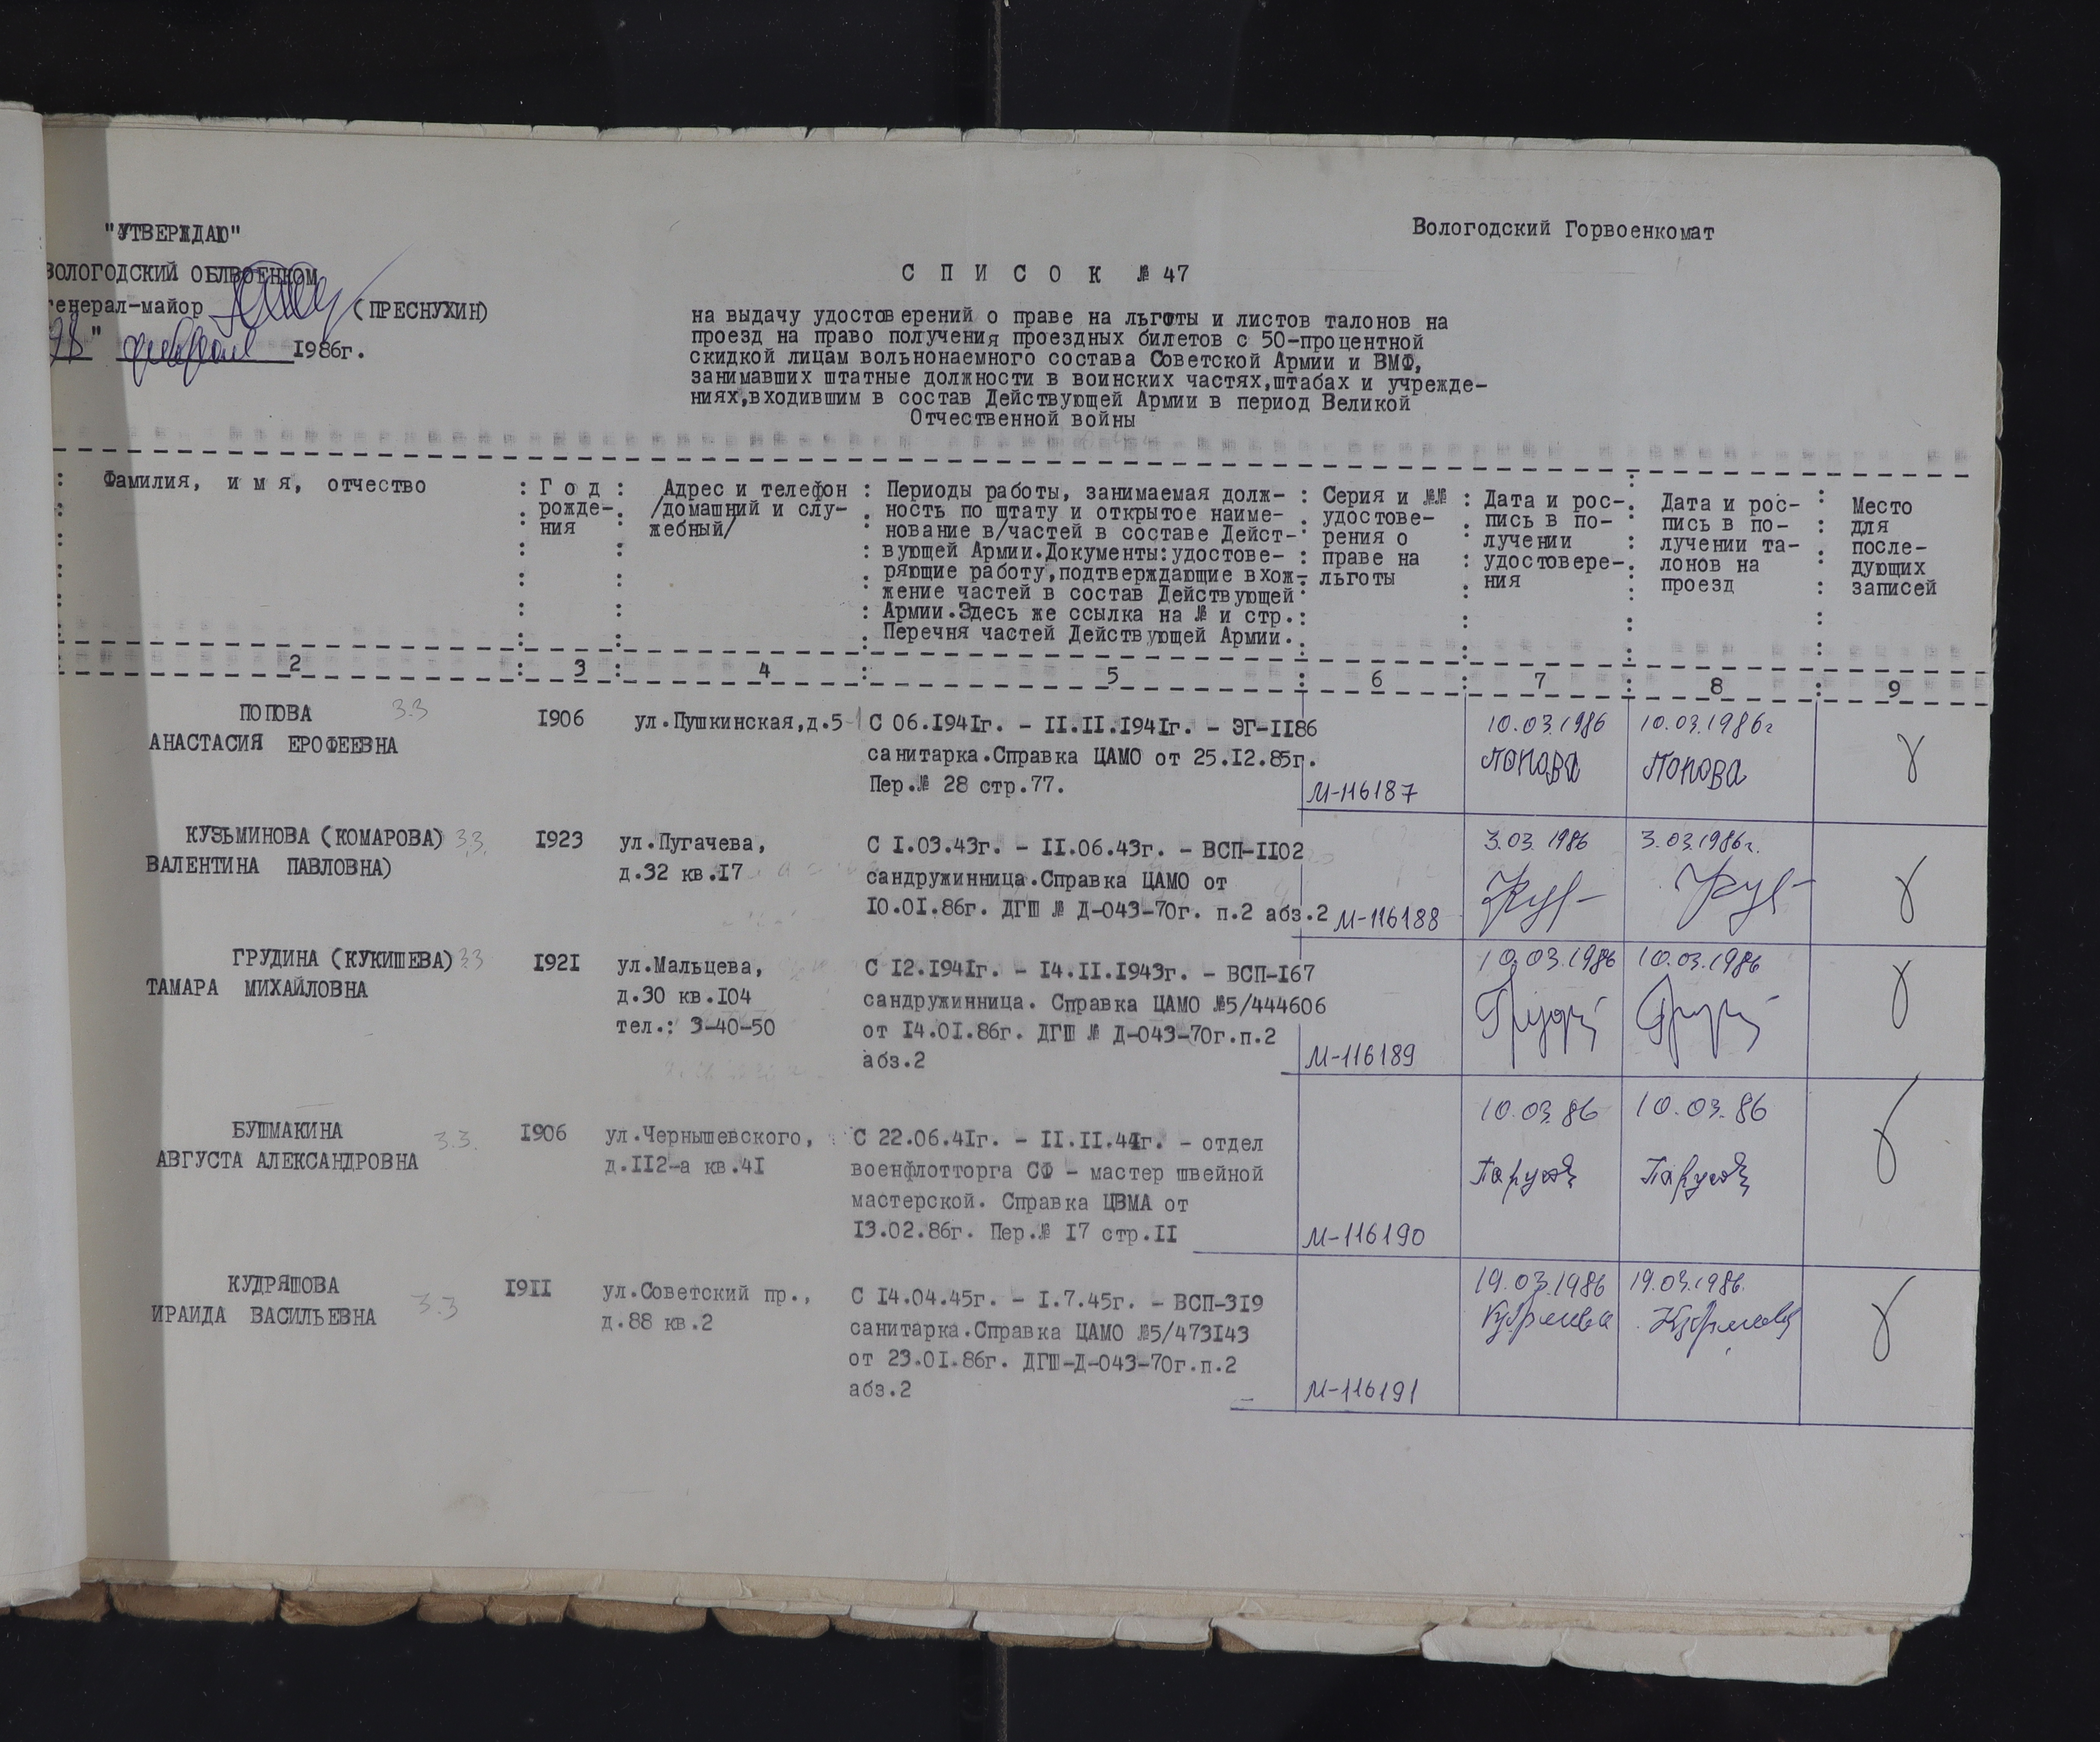 "УТВЕРЖДАЮ"
ВОЛОГОДСКИЙ ОБЛВОЕНКОМ
генерал-майор (ПРЕСНУХИН)
" февраля 1986г.
Вологодский Горвоенкомат
С П И С О К № 47
на выдачу удостоверений о праве на льготы и листов талонов на
проезд на право получения проездных билетов с 50-процентной
скидкой лицам вольнонаемного состава Советской Армии и ВМФ,
занимавших штатные должности в воинских частях,штабах и учрежде-
ниях,входившим в состав Действующей Армии в период Великой
Отечественной войны
Фамилия, и м я, отчество
Г о д
рожде-
ния
Адрес и телефон
/домашний и слу-
жебный/
Периоды работы, занимаемая долж-
ность по штату и открытое наиме-
нование в/частей в составе Дейст-
вующей Армии.Документы:удостове-
ряющие работу,подтверждающие вхож-
жение частей в состав Действующей
Армии.Здесь же ссылка на № и стр.
Перечня частей Действующей Армии.
Серия и №№
удостове-
рения о
праве на
льготы
Дата и рос-
пись в по-
лучении
удостовере-
ния
Дата и рос-
пись в по-
лучении та-
лонов на
проезд
Место
для
после-
дующих
записей
2 3 4 5 6 7 8 9
ПОПОВА 3.3
АНАСТАСИЯ ЕРОФЕЕВНА
1906
ул.Пушкинская,д.5-1
С 06.1941г. - II.II.1941г. - ЭГ-II86
санитарка.Справка ЦАМО от 25.12.85г.
Пер.№ 28 стр.77.
М-116187
10.03.1986
Попова
10.03.1986г
Попова
КУЗЬМИНОВА (КОМАРОВА) 3.3.
ВАЛЕНТИНА ПАВЛОВНА)
1923
ул.Пугачева,
д.32 кв.17
С I.03.43г. - II.06.43г. - ВСП-II02
сандружинница.Справка ЦАМО от
10.01.86г. ДГШ № Д-043-70г. п.2 абз.2
М-116188
3.03.1986
3.03.1986г.
ГРУДИНА (КУКИШЕВА) 3.3
ТАМАРА МИХАЙЛОВНА
1921
ул.Мальцева,
д.30 кв.104
тел.: 3-40-50
С 12.1941г. - 14.II.1943г. - ВСП-167
сандружинница. Справка ЦАМО №5/444606
от 14.01.86г. ДГШ № Д-043-70г.п.2
абз.2
М-116189
10.03.1986
10.03.1986
БУШМАКИНА 3.3.
АВГУСТА АЛЕКСАНДРОВНА
1906
ул.Чернышевского,
д.II2-а кв.41
С 22.06.41г. - II.II.44г. - отдел
военфлотторга СФ - мастер швейной
мастерской. Справка ЦВМА от
13.02.86г. Пер.№ 17 стр.II
М-116190
10.03.86
10.03.86
КУДРЯШОВА 3.3
ИРАИДА ВАСИЛЬЕВНА
1911
ул.Советский пр.,
д.88 кв.2
С 14.04.45г. - I.7.45г. - ВСП-319
санитарка.Справка ЦАМО №5/473143
от 23.01.86г. ДГШ-Д-043-70г.п.2
абз.2
М-116191
19.03.1986
19.03.1986.